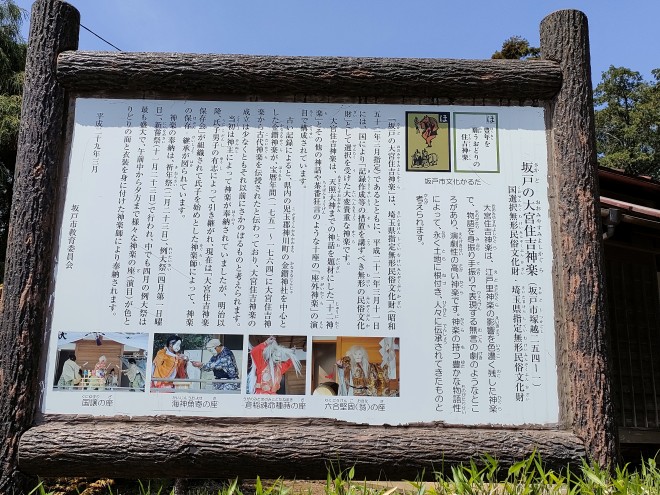 坂戸の大宮住吉神楽 (坂戸市塚越一五四一一)
国選択無形民俗文化財 埼玉県指定無形民俗文化財
大宮住吉神楽は、江戸里神楽の影響を色濃く残した神楽
で、物語を身振り手振りで表現する無言の劇のようなとこ
ろがあり、演劇性の高い神楽です。神楽の持つ豊かな物語性
によって、永く土地に根付き、人々に伝承されてきたものと
考えられます。
は
豊年を
願うおどりの
住吉神楽
は
坂戸市文化かるた
「坂戸の大宮住吉神楽」は、埼玉県指定無形民俗文化財(昭和
五十二年三月指定)であるとともに、平成二十二年三月十一日
には、国により「記録作成等の措置を講ずべき無形の民俗文化
財」として選択を受けた大変貴重な神楽です。
大宮住吉神楽は、天照大神までの神話を題材にした「二十一神
楽」とその他の神話や茶番狂言のような十座の「座外神楽」の演
目で構成されています。
古い記録によると、県内の児玉郡神川町の金鑚神社を中心と
した金鑚神楽が、宝暦年間(一七五一~一七六四)に大宮住吉神
楽から古代神楽を伝授されたと伝わっており、大宮住吉神楽の
成立は少なくともそれ以前にさかのぼるものと考えられます。
当初は神主によって神楽が奉納されていましたが、明治以
降、氏子男子の有志によって引き継がれ、現在は「大宮住吉神楽
保存会」が組織されて氏子を始めとした神楽師によって、神楽
の保存・継承が図られています。
神楽の奉納は、「祈年祭(二月二十三日)」「例大祭(四月第一日曜
日)」「新嘗祭(十一月二十三日)」で行われ、中でも四月の例大祭は
最も盛大で、午前中から夕方まで様々な神楽の座(演目)が色と
りどりの面と衣装を身に付けた神楽師により奉納されます。
平成二十九年三月
坂戸市教育委員会
国譲の座
海神魚寄の座
倉稲魂命種蒔の座
六合堅固(笹)の座